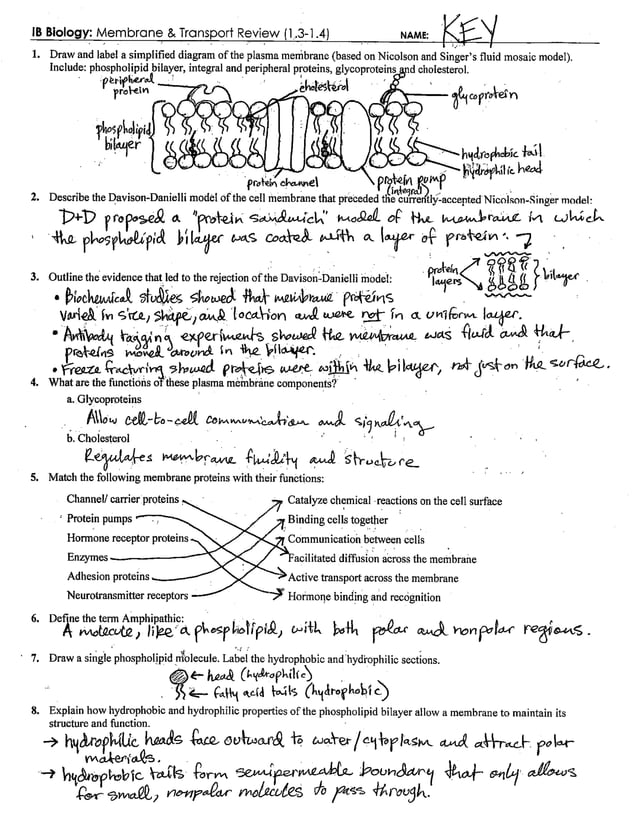 IB Biology: Membrane & Transport Review (1.3-1.4) NAME: KEY
1. Draw and label a simplified diagram of the plasma membrane (based on Nicolson and Singer's fluid mosaic model).
Include: phospholipid bilayer, integral and peripheral proteins, glycoproteins and cholesterol.
peripheral protein
cholesterol
glycoprotein
phospholipid bilayer
hydrophobic tail
hydrophilic head
protein channel
protein pump
(integral)
2. Describe the Davison-Danielli model of the cell membrane that preceded the currently-accepted Nicolson-Singer model:
D+D proposed a "protein sandwich" model of the membrane in which
the phospholipid bilayer was coated with a layer of protein:
protein layers
bilayer
3. Outline the evidence that led to the rejection of the Davison-Danielli model:
• Biochemical studies showed that membrane proteins
varied in size, shape, and location and were not in a uniform layer.
• Antibody tagging experiments showed the membrane was fluid and that
proteins moved around in the bilayer.
• Freeze fracturing showed proteins were within the bilayer, not just on the surface.
4. What are the functions of these plasma membrane components?
a. Glycoproteins
Allow cell-to-cell communication and signaling
b. Cholesterol
Regulates membrane fluidity and structure
5. Match the following membrane proteins with their functions:
Channel/ carrier proteins Catalyze chemical reactions on the cell surface
Protein pumps Binding cells together
Hormone receptor proteins Communication between cells
Enzymes Facilitated diffusion across the membrane
Adhesion proteins Active transport across the membrane
Neurotransmitter receptors Hormone binding and recognition
6. Define the term Amphipathic:
A molecule, like a phospholipid, with both polar and nonpolar regions.
7. Draw a single phospholipid molecule. Label the hydrophobic and hydrophilic sections.
← head (hydrophilic)
← fatty acid tails (hydrophobic)
8. Explain how hydrophobic and hydrophilic properties of the phospholipid bilayer allow a membrane to maintain its
structure and function.
→ hydrophilic heads face outward to water/cytoplasm and attract polar
materials.
→ hydrophobic tails form semipermeable boundary that only allows
for small, nonpolar molecules to pass through.